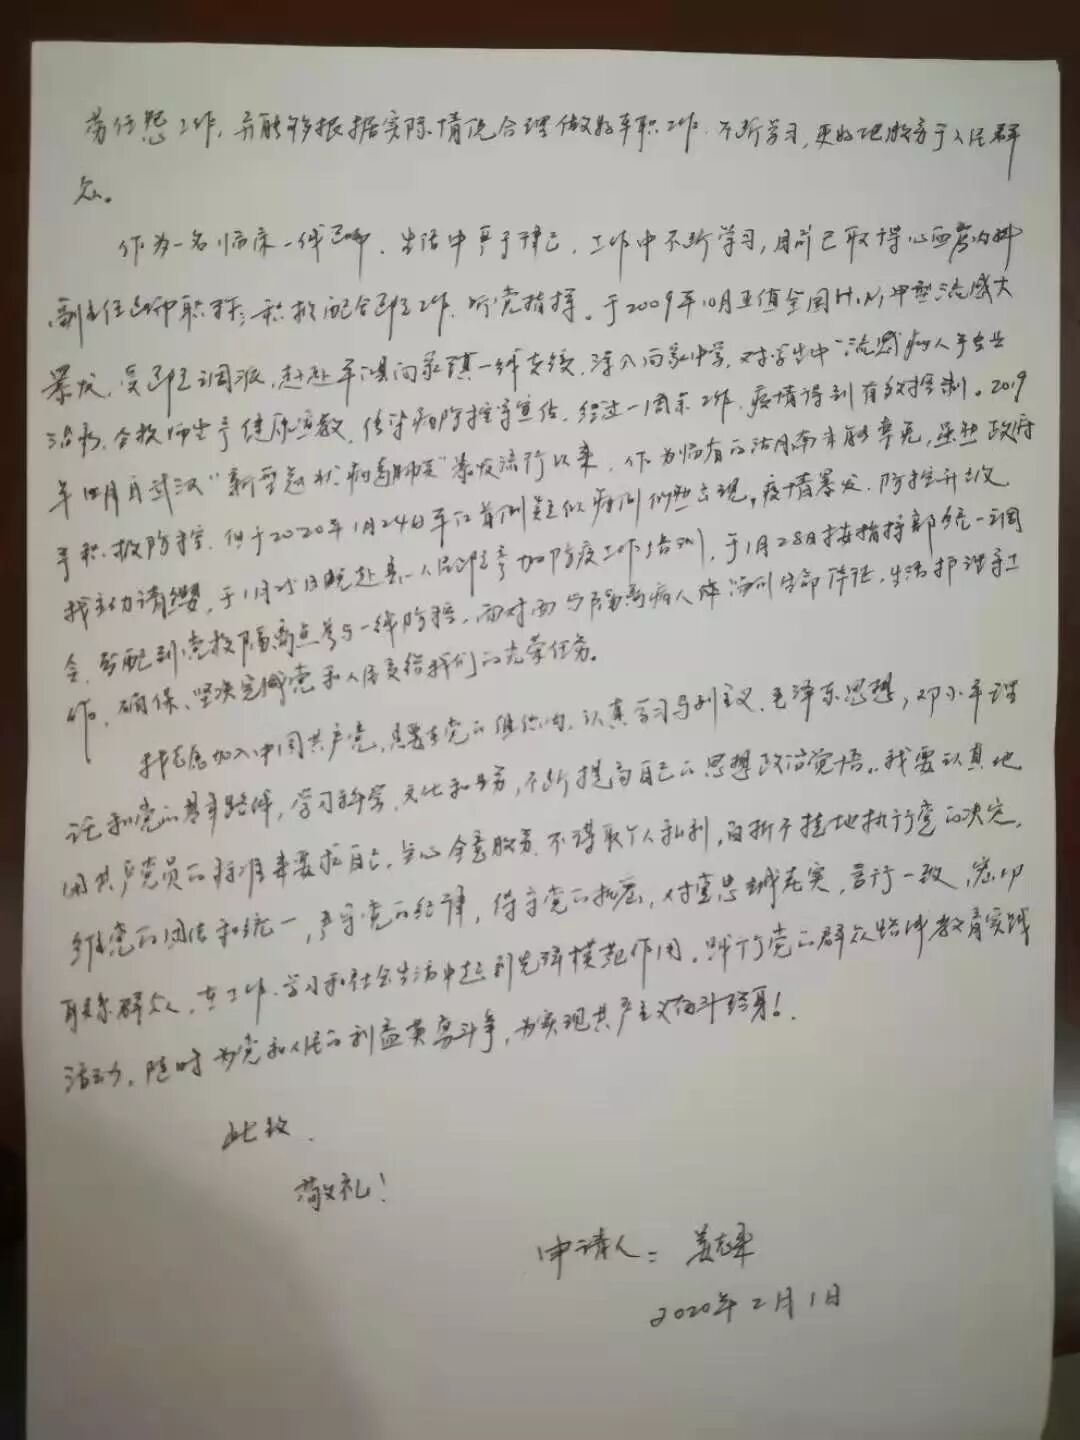 劳任怨工作,并能够根据实际情况合理做好本职工作.不断学习,更好地服务于人民群
众。
作为一名临床一线医师.生活中严于律己,工作中不断学习,目前已取得心血管内科
副主任医师职称;积极配合医院工作.听党指挥。于2009年10月正值全国H1N1甲型流感大
暴发,受医院调派,赶赴平江县向家镇一线支援,深入向家中学,对学生中"流感"病人予专业
治疗,全校师生予健康宣教,传染病防控等宣传.经过一周末工作.疫情得到有效控制。2019
年12月自武汉"新型冠状病毒肺炎"暴发流行以来.作为临省的湖南未能幸免,虽然政府
予积极防控,但于2020年1月24日平江首例疑似病例仍然出现。疫情暴发.防控升级
我主动请缨,于1月25日晚赴县一人民医院参加防疫工作培训,于1月28日接指挥部统一调
令,分配到党校隔离点参与一线防控,面对面与隔离病人体测生命体征.生活护理等工
作。确保、坚决完成党和人民交给我们的光荣任务。
我志愿加入中国共产党,愿在党的组织内,认真学习马列主义、毛泽东思想,邓小平理
论和党的基本路线,学习科学、文化和业务,不断提高自己的思想政治觉悟。我要认真地
用共产党员的标准来要求自己,全心全意服务.不谋取个人私利,百折不挠地执行党的决定,
维护党的团结和统一,严守党的纪律,保守党的机密,对党忠诚老实,言行一致,密切
联系群众,在工作、学习和社会生活中起到先锋模范作用。践行党的群众路线教育实践
活动。随时为党和人民的利益英勇斗争,为实现共产主义奋斗终身!
此致.
敬礼!
申请人:姜志
2020年2月1日